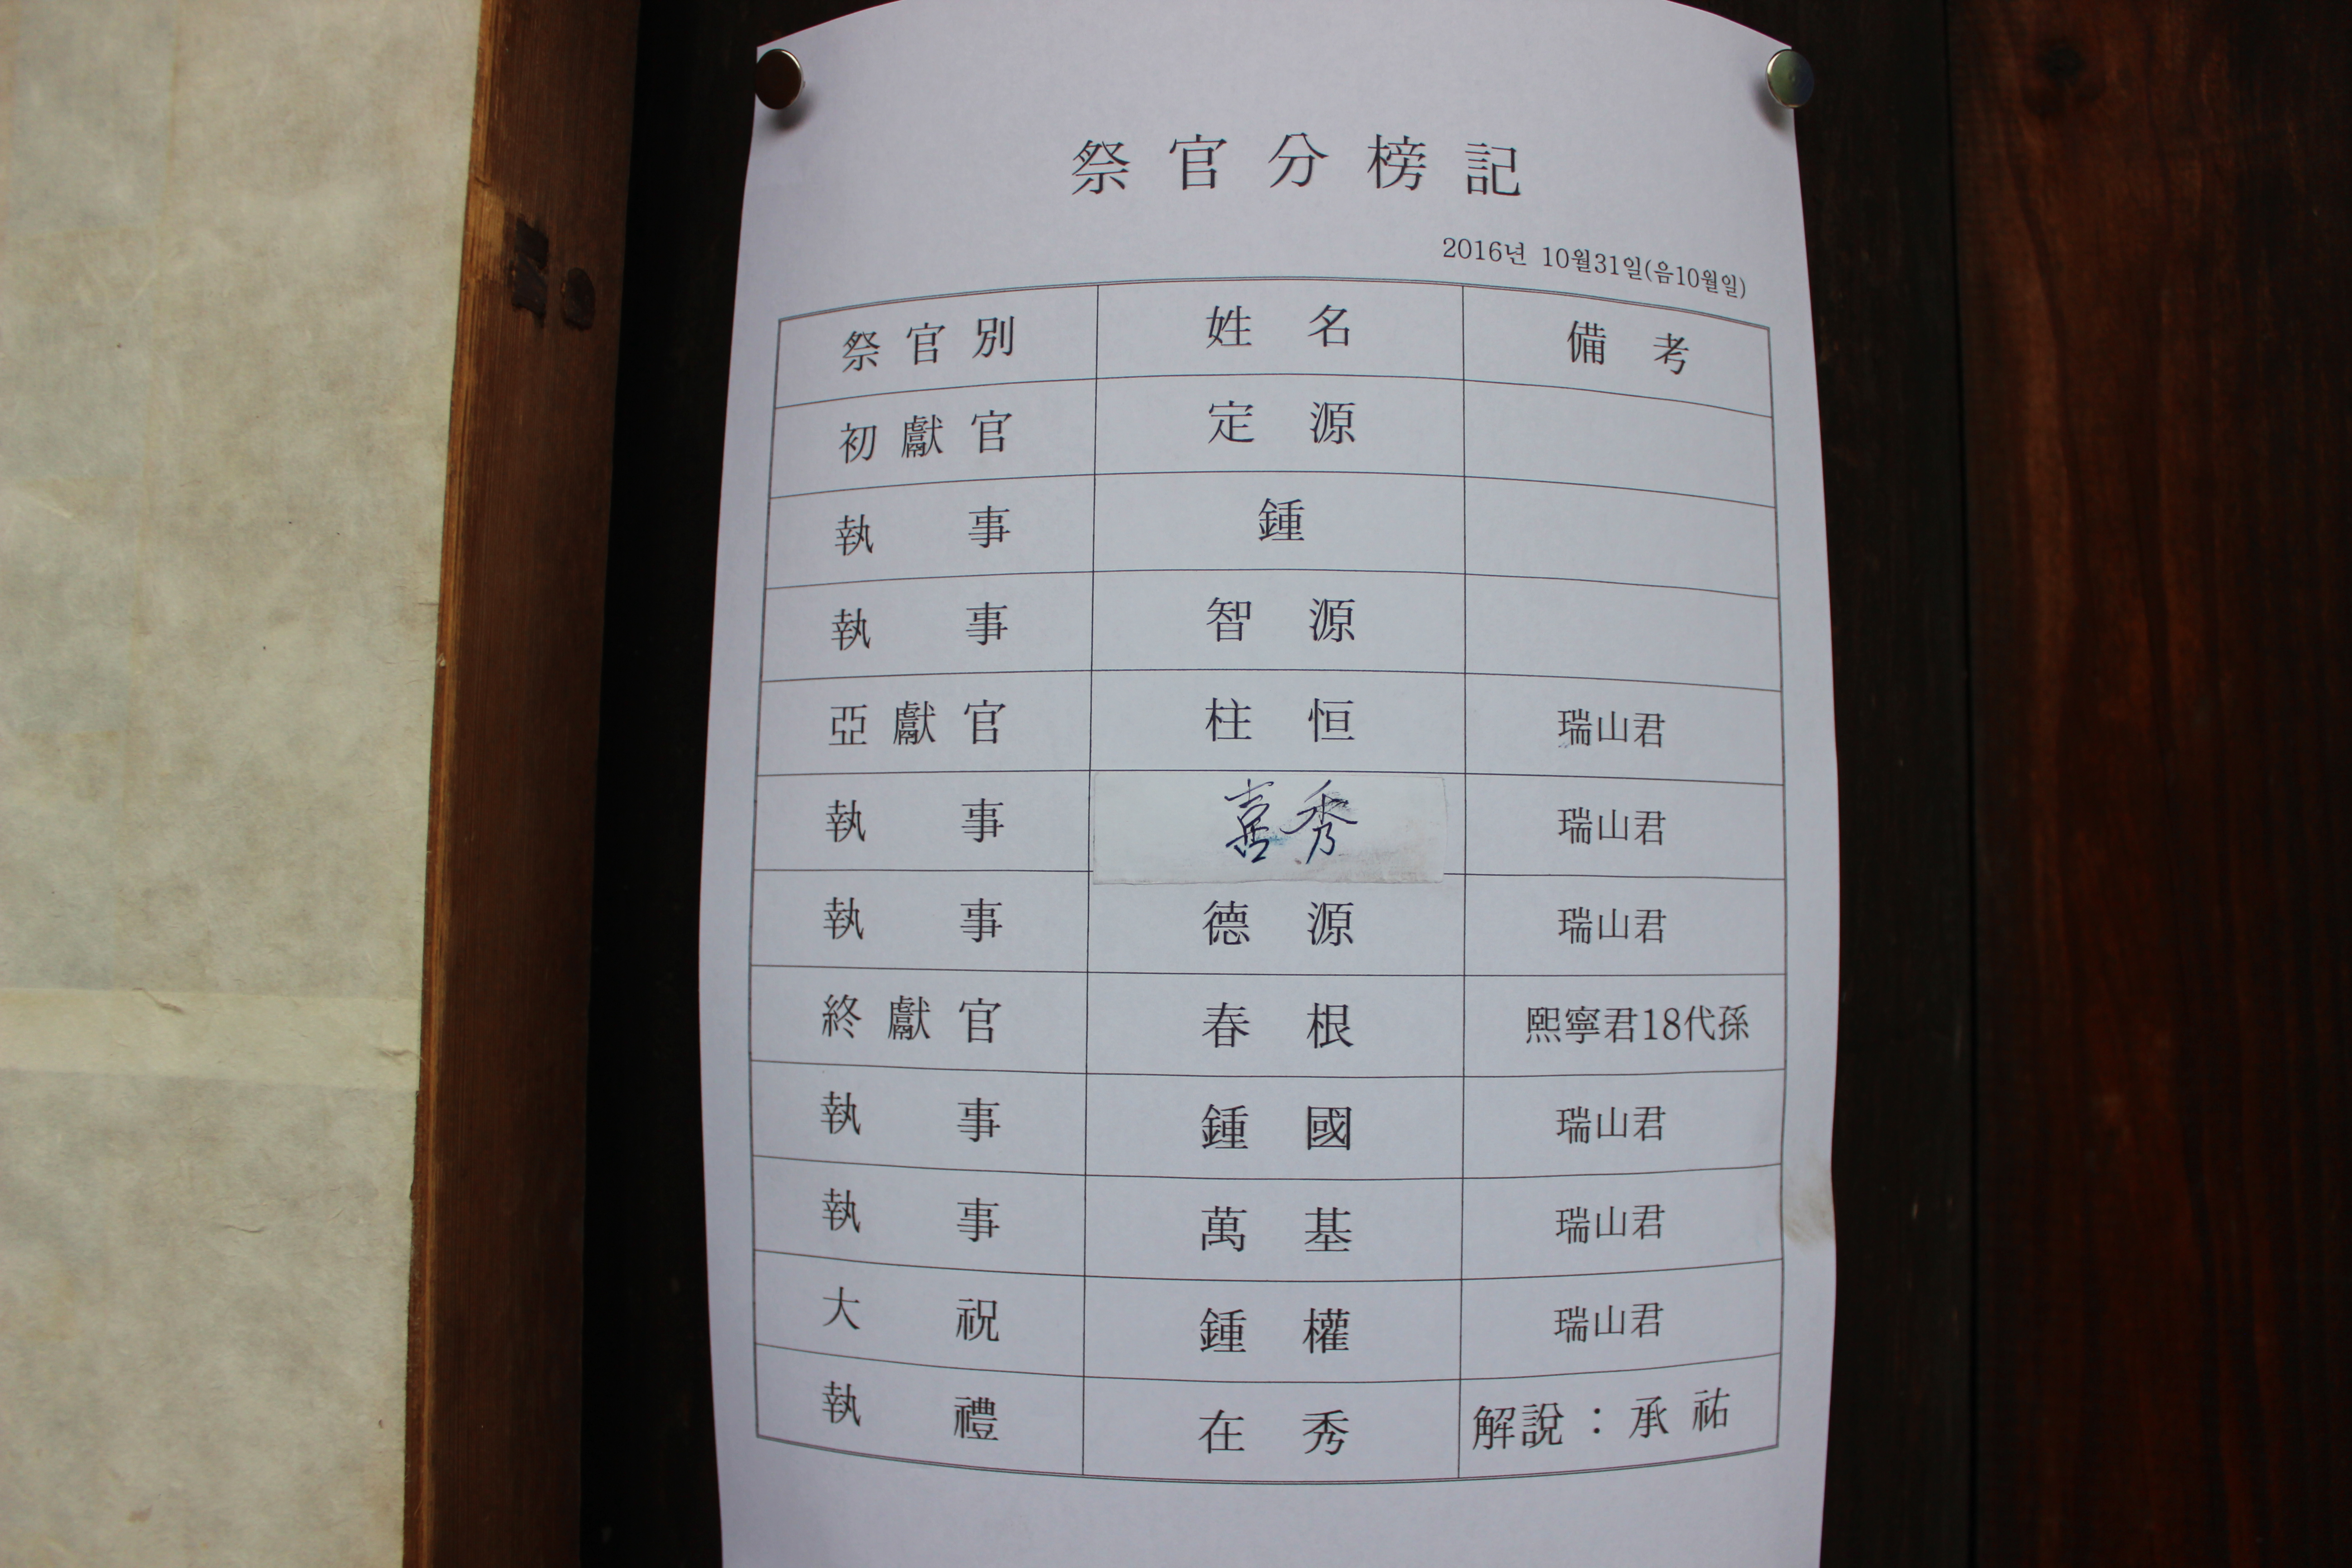 祭官分榜記
2016년 10월31일(음10월일)
祭官別 姓名 備考
初獻官 定源
執事 鍾
執事 智源
亞獻官 柱恒 瑞山君
執事 喜秀 瑞山君
執事 德源 瑞山君
終獻官 春根 熙寧君18代孫
執事 鍾國 瑞山君
執事 萬基 瑞山君
大祝 鍾權 瑞山君
執禮 在秀 解說：承祐